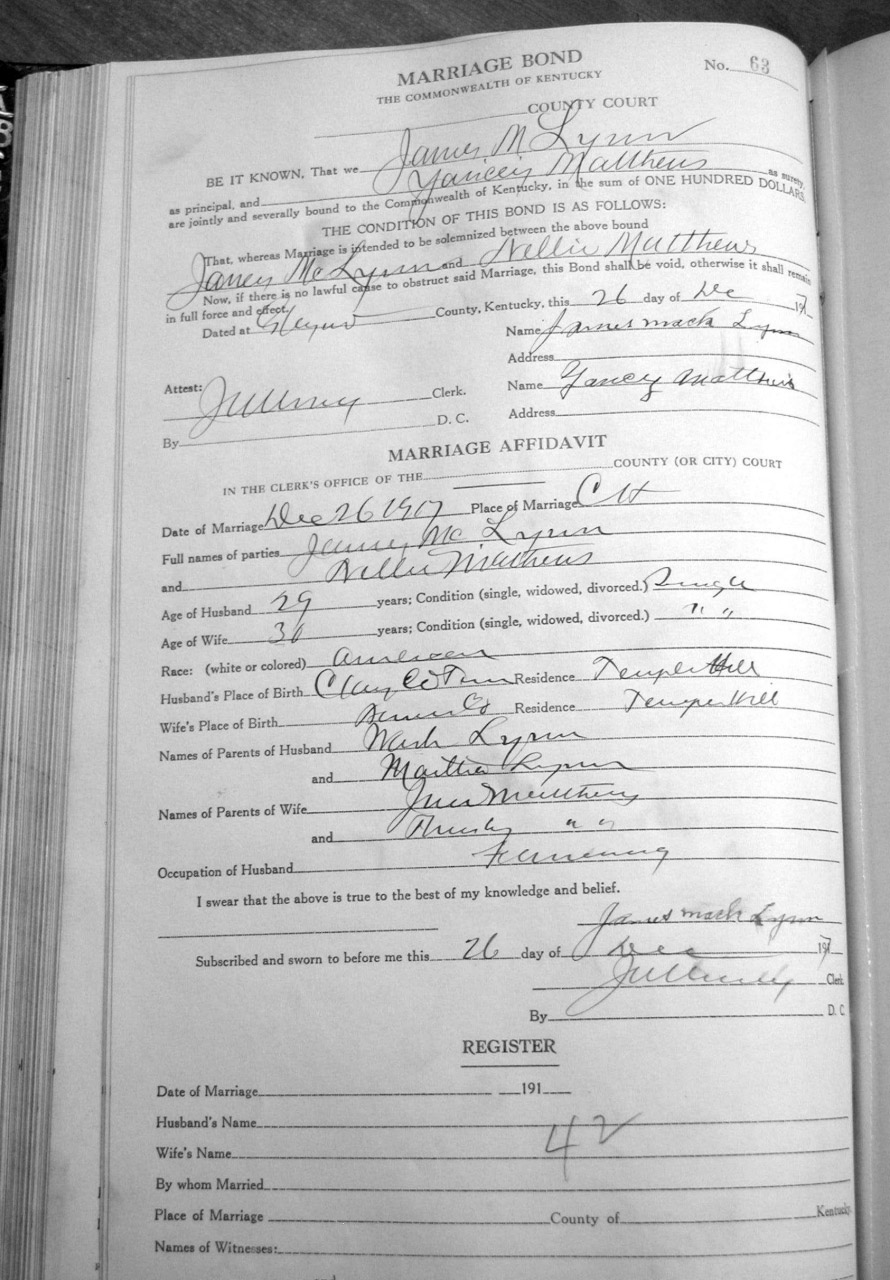 MARRIAGE BOND
No. 63
THE COMMONWEALTH OF KENTUCKY
COUNTY COURT
BE IT KNOWN, That we James M Lynn
as principal, and Yancey Matthews as surety,
are jointly and severally bound to the Commonwealth of Kentucky, in the sum of ONE HUNDRED DOLLARS.
THE CONDITION OF THIS BOND IS AS FOLLOWS:
That, whereas Marriage is intended to be solemnized between the above bound
James Mc Lynn and Nellie Matthews
Now, if there is no lawful cause to obstruct said Marriage, this Bond shall be void, otherwise it shall remain
in full force and effect.
Dated at County, Kentucky, this 26 day of Dec 1917
Name James mack Lynn
Address
Attest: Clerk. Name Yancey Matthews
By D. C. Address
MARRIAGE AFFIDAVIT
IN THE CLERK'S OFFICE OF THE COUNTY (OR CITY) COURT
Date of Marriage Dec 26 1917 Place of Marriage C H
Full names of parties James Mc Lynn
and Nellie Matthews
Age of Husband 29 years; Condition (single, widowed, divorced.) Single
Age of Wife 30 years; Condition (single, widowed, divorced.) " "
Race: (white or colored) American
Husband's Place of Birth Clay Co Tenn Residence Temple Hill
Wife's Place of Birth Residence Temple Hill
Names of Parents of Husband Wash Lynn
and Martha Lynn
Names of Parents of Wife Jno Matthews
and " "
Occupation of Husband Farming
I swear that the above is true to the best of my knowledge and belief.
James mack Lynn
Subscribed and sworn to before me this 26 day of Dec 1917
Clerk
By D. C.
REGISTER
Date of Marriage 191
Husband's Name
42
Wife's Name
By whom Married
Place of Marriage County of Kentucky.
Names of Witnesses:
and